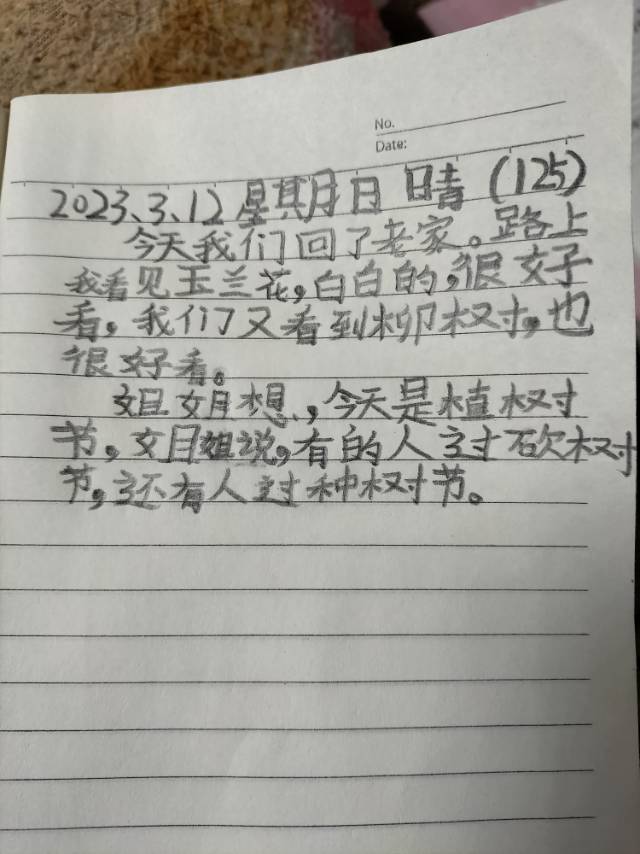 No.
Date:
2023、3、12 星期日 晴 (125)
今天我们回了老家。路上
我看见玉兰花,白白的,很好
看。我们又看到柳树,也
很好看。
姐姐想,今天是植树
节,姐姐说,有的人过砍树
节,还有人过种树节。